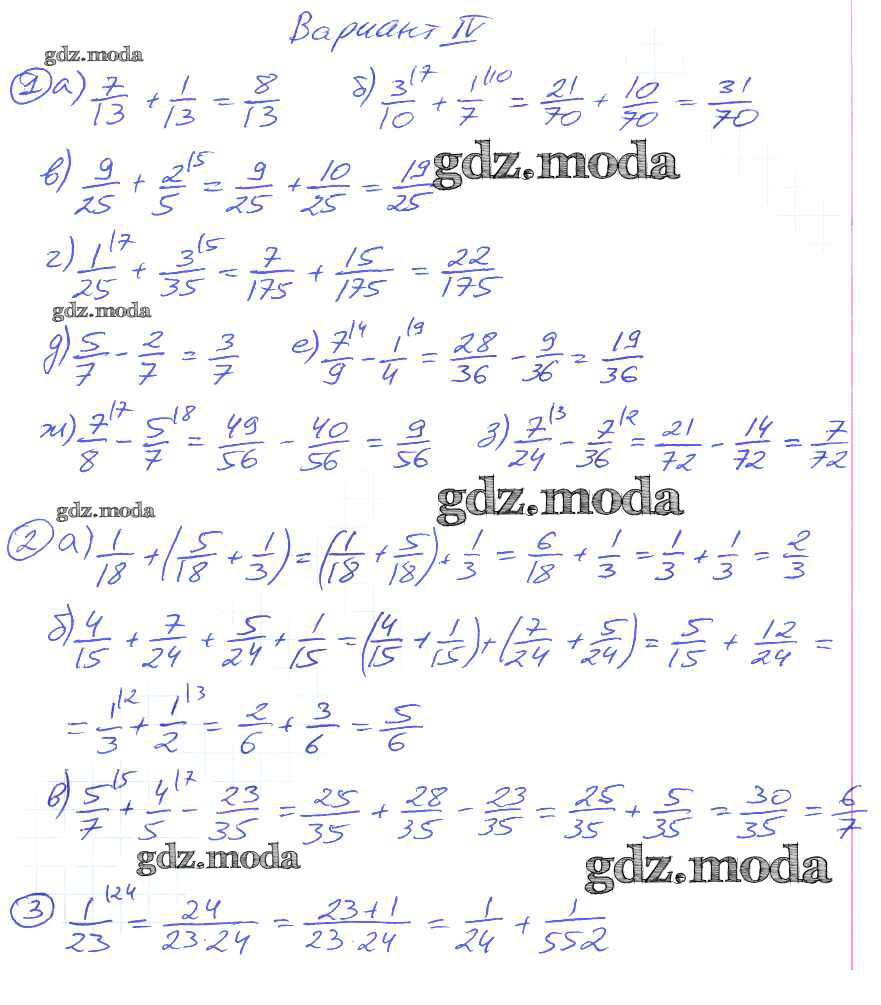 Вариант IV
gdz.moda
1 а) 7/13 + 1/13 = 8/13 б) 3/10 |7 + 1/7 |10 = 21/70 + 10/70 = 31/70
в) 9/25 + 2/5 |5 = 9/25 + 10/25 = 19/25
gdz.moda
г) 1/25 |7 + 3/35 |5 = 7/175 + 15/175 = 22/175
gdz.moda
д) 5/7 - 2/7 = 3/7 е) 7/9 |4 - 1/4 |9 = 28/36 - 9/36 = 19/36
ж) 7/8 |7 - 5/7 |8 = 49/56 - 40/56 = 9/56 з) 7/24 |3 - 7/36 |2 = 21/72 - 14/72 = 7/72
gdz.moda
gdz.moda
2 а) 1/18 + (5/18 + 1/3) = (1/18 + 5/18) + 1/3 = 6/18 + 1/3 = 1/3 + 1/3 = 2/3
б) 4/15 + 7/24 + 5/24 + 1/15 = (4/15 + 1/15) + (7/24 + 5/24) = 5/15 + 12/24 =
= 1/3 |2 + 1/2 |3 = 2/6 + 3/6 = 5/6
в) 5/7 |5 + 4/5 |7 - 23/35 = 25/35 + 28/35 - 23/35 = 25/35 + 5/35 = 30/35 = 6/7
gdz.moda
gdz.moda
3 1/23 |24 = 24/23·24 = 23+1/23·24 = 1/24 + 1/552